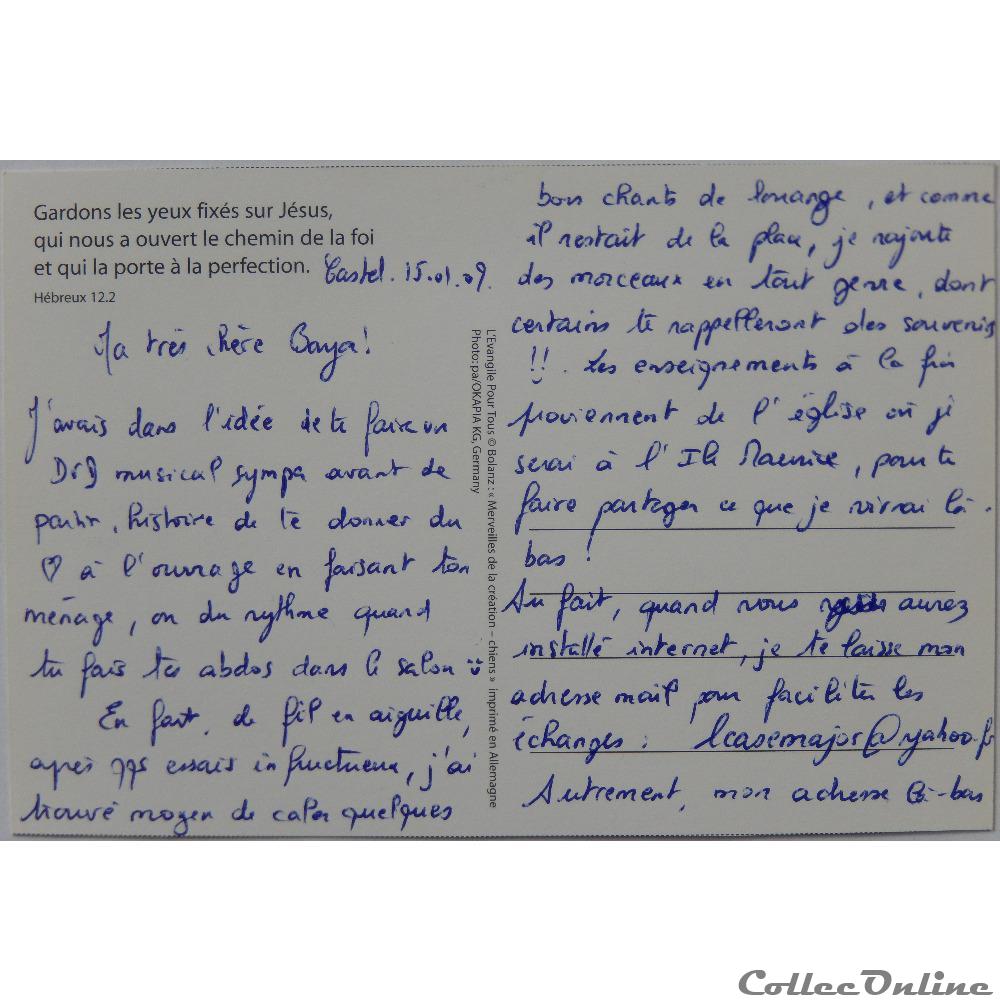 Gardons les yeux fixés sur Jésus,
qui nous a ouvert le chemin de la foi
et qui la porte à la perfection.
Castel. 15.01.09.
Hébreux 12.2
Ma très chère
J'avais dans l'idée de te faire un
musical sympa avant de
partir, histoire de te donner du
♡ à l'ouvrage en faisant ton
ménage, ou du rythme quand
tu fais tes abdos dans le salon
En fait, de fil en aiguille,
après essais infructueux, j'ai
trouvé moyen de caler quelques
L'Evangile Pour Tous © Bolanz : « Merveilles de la création – chiens » imprimé en Allemagne
Photo: pa/OKAPIA KG, Germany
bons chants de louange, et comme
il restait de la place, je rajoute
des morceaux en tout genre, dont
certains te rappelleront des souvenirs
!! . Les enseignements à la fin
proviennent de l'église où je
serai à l'Ile Maurice, pour te
faire partager ce que je vivrai là-
bas !
Au fait, quand vous aurez
installé internet, je te laisse mon
adresse mail pour faciliter les
échanges : lcasemajor@yahoo.fr
Autrement, mon adresse là-bas
CollecOnline